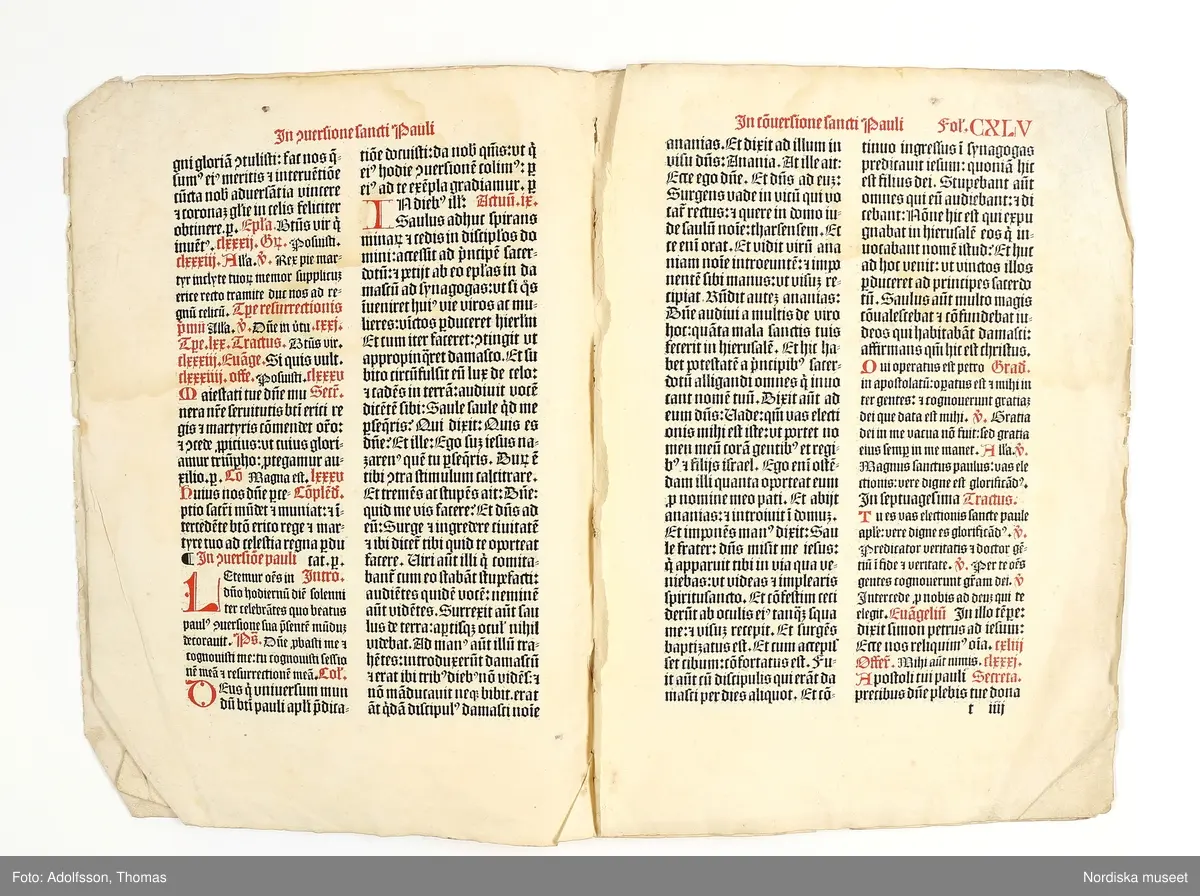 In ꝯuersione sancti Pauli
gni gloriã ꝯtulisti: fac nos q̃-
sumꝰ eiꝰ meritis ⁊ interuẽtiõe
cũcta nob̃ aduersãtia vincere
⁊ coronaꝫ gl̃ie in celis feliciter
obtinere. p. Epl̃a. Btũs vir q̃
inuẽtꝰ. clxxxij. Gꝝ. Posuisti.
clxxxiij. All̃a. v̕. Rex pie mar-
tyr inclyte tuoꝝ memor supplicuꝫ
erice recto tramite duc nos ad re-
gnũ celicũ. Tp̃e resurrectionis
p̃mũ All̃a. v̕. Dñe in v̕tu. cxxj.
Tp̃e. lxx. Tractus. Btũs vir.
clxxxiij. Euãge. Si quis vult.
clxxxiiij. offe. Posuisti. clxxxv
Maiestati tue dñe mu Secr̃.
nera nr̃e seruitutis bt̃i erici re
gis ⁊ martyris cõmendet or̃o:
⁊ ꝯcede ꝓpicius: vt cuius glori-
amur triũpho: ꝓtegamur au-
xilio. p. Cõ Magna est. lxxxv
Huius nos dñe ꝑce- Cõplẽd̃.
ptio sacr̃i mũdet ⁊ muniat: ⁊ ĩ-
tercedẽte bt̃o erico rege ⁊ mar-
tyre tuo ad celestia regna ꝑdu
¶ In ꝯuersiõe pauli cat. p.
LEtemur oẽs in Intro.
dño hodiernũ diẽ solenni
ter celebrãtes quo beatus
paulꝰ ꝯuersione sua p̃sentẽ mũduꝫ
decorauit. Ps̃. Dñe ꝓbasti me ⁊
cognouisti me: tu cognouisti sessio
nẽ meã ⁊ resurrectionẽ meã. Col̃.
DEus q̃ uniuersum mun
dũ bt̃i pauli apl̃i p̃dica-
tiõe docuisti: da nob̃ qm̃s: vt q̃
eiꝰ hodie ꝯuersionẽ colimꝰ: ꝑ
eiꝰ ad te exẽpla gradiamur. p
IN diebꝰ ill̃: Actuũ. ix.
Saulus adhuc spirans
minaꝝ ⁊ cedis in disciplos do
mini: accessit ad p̃ncipẽ sacer-
dotũ: ⁊ petijt ab eo ep̃las in da
mascũ ad synagogas: vt si q̃s
ĩueniret huiꝰ vie viros ac mu-
lieres: vĩctos ꝑduceret hierl̃m
Et cum iter faceret: ꝯtingit vt
appropinq̃ret damasco. Et su
bito circũfulsit eũ lux de celo:
⁊ cadẽs in terrã: audiuit vocẽ
dicẽtẽ sibi: Saule saule q̃d me
ꝑseq̃ris? Qui dixit: Quis es
dñe? Et ille: Ego suꝫ iesus na-
zarenꝰ quẽ tu ꝑseq̃ris. Duꝝ ẽ
tibi ꝯtra stimulum calcitrare.
Et tremẽs ac stupẽs ait: Dñe:
quid me vis facere? Et dñs ad
eũ: Surge ⁊ ingredere ciuitatẽ
⁊ ibi dicet̃ tibi quid te oporteat
facere. Uiri aũt illi q̃ comita-
bant̃ cum eo stabãt stupefacti:
audiẽtes quidẽ vocẽ: neminẽ
aũt vidẽtes. Surrexit aũt sau
lus de terra: aꝑtisq; oculꝭ nihil
videbat. Ad manꝰ aũt illũ tra-
hẽtes: introduxerũt damascũ
⁊ erat ibi tribꝰ diebꝰ nõ vidẽs: ⁊
nõ mãducauit neq; bibit. erat
aũt q̃dã discipulꝰ damasci noĩe
In cõuersione sancti Pauli Fol̕. CXLV
ananias. Et dixit ad illum in
visu dñs: Anania. At ille ait:
Ecce ego dñe. Et dñs ad euꝫ:
Surgens vade in vicũ qui vo
cat̃ rectus: ⁊ quere in domo iu-
de saulũ noĩe: tharsensem. Ec
ce eni orat. Et vidit virũ ana
niam noĩe introeuntẽ: ⁊ impo
nentẽ sibi manus: vt visuꝫ re-
cipiat. Rñdit auteꝫ ananias:
Dñe audiui a multis de viro
hoc: quãta mala sanctis tuis
fecerit in hierusalẽ. Et hic ha-
bet potestatẽ a p̃ncipibꝰ sacer-
dotũ alligandi omnes q̃ inuo
cant nomẽ tuũ. Dixit aũt ad
eum dñs: Uade: qm̃ vas electi
onis mihi est iste: vt portet no
men meũ corã gentibꝰ et regi-
bꝰ ⁊ filijs israel. Ego eni ostẽ-
dam illi quanta oporteat eum
ꝓ nomine meo pati. Et abijt
ananias: ⁊ introiuit ĩ domuꝫ.
Et imponẽs manꝰ dixit: Sau
le frater: dñs misit me iesus:
q̃ apparuit tibi in via qua ve-
niebas: vt videas ⁊ implearis
spiritusancto. Et cõfestim ceci
derũt ab oculis eiꝰ tanq̃ꝫ squa
me: ⁊ visuꝫ recepit. Et surgẽs
baptizatus est. Et cum accepis
set cibum: cõfortatus est. Fu-
it aũt cũ discipulis qui erãt da
masci per dies aliquot. Et cõ-
tinuo ingressus ĩ synagogas
predicauit iesum: quoniã hic
est filius dei. Stupebant aũt
omnes qui eũ audiebant: ⁊ di
cebant: Nõne hic est qui expu
gnabat in hierusalẽ eos q̃ in-
uocabant nomẽ istud? Et huc
ad hoc venit: vt vinctos illos
ꝑduceret ad principes sacerdo
tũ. Saulus aũt multo magis
cõualescebat ⁊ cõfundebat iu-
deos qui habitabãt damasci:
affirmans qm̃ hic est christus.
Qui operatus est petro Grad̃.
in apostolatũ: oꝑatus est ⁊ mihi in
ter gentes: ⁊ cognouerunt gratiaꝫ
dei que data est mihi. v̕. Gratia
dei in me vacua nõ fuit: sed gratia
eius semꝑ in me manet. All̃a. v̕.
Magnus sanctus paulus: vas ele
ctionis: vere digne est glorificãdꝰ.
In septuagesima Tractus.
Tu es vas electionis sancte paule
apl̃e: vere digne es glorificãdꝰ. v̕.
Predicator veritatis ⁊ doctor gẽ-
tiũ ĩ fide ⁊ veritate. v̕. Per te oẽs
gentes cognouerunt gr̃am dei. v̕
Intercede ꝓ nobis ad deuꝫ qui te
elegit. Euãgeliũ In illo tẽpe:
dixit simon petrus ad iesum:
Ecce nos reliquimꝰ oĩa. cxliij
Offer̃. Mihi aũt nimis. clxxxj.
Apostoli tui pauli Secreta.
precibus dñe plebis tue dona
t iiij
Foto: Adolfsson, Thomas
Nordiska museet